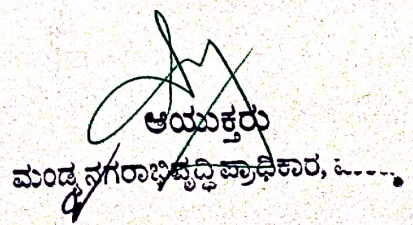 ಆಯುಕ್ತರು
ಮಂಡ್ಯ ನಗರಾಭಿವೃದ್ಧಿ ಪ್ರಾಧಿಕಾರ,